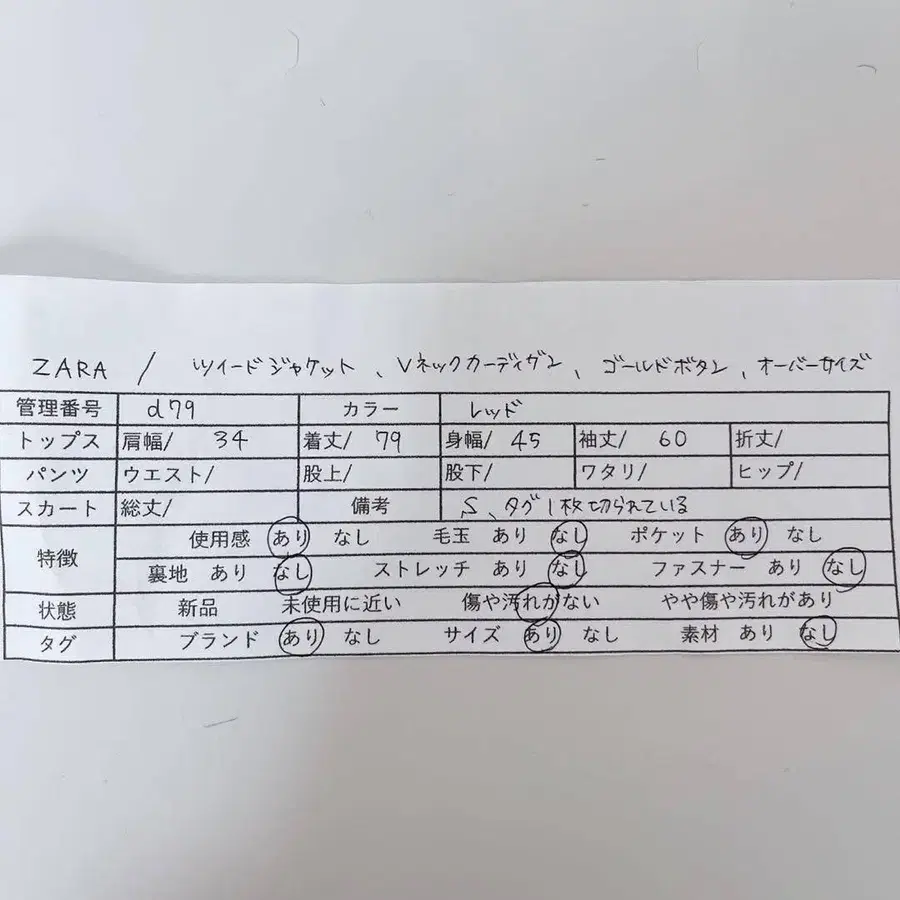 ZARA / ツイードジャケット、Vネックカーディガン、ゴールドボタン、オーバーサイズ
管理番号 d79 カラー レッド
トップス 肩幅/ 34 着丈/ 79 身幅/ 45 袖丈/ 60 折丈/
パンツ ウエスト/ 股上/ 股下/ ワタリ/ ヒップ/
スカート 総丈/ 備考 S、タグ1枚切られている
特徴 使用感 あり なし 毛玉 あり なし ポケット あり なし
裏地 あり なし ストレッチ あり なし ファスナー あり なし
状態 新品 未使用に近い 傷や汚れがない やや傷や汚れがあり
タグ ブランド あり なし サイズ あり なし 素材 あり なし